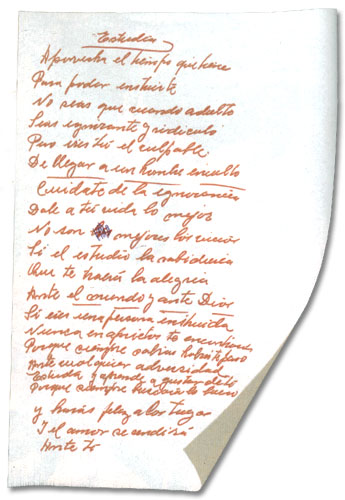 Estudia
Aprovecha el tiempo que tiene
Para poder instruirte
No seas que cuando adulto
Seas ignorante y ridiculo
Pero eres tú el culpable
De llegar a un hombre inculto
Cuidate de la ignorancia
Dale a tú vida lo mejor
No son mejores los
Si el estudio la sabiduria
Que te hará la alegria
Ante el mundo y ante Dios
Si eres una persona instruida
Nunca en aprietos te encontraras
Porque siempre sabras
Ante cualquier adversidad
Estudia y aprende a gustar de lo
Porque siempre lo bueno
y harás feliz a los tuyos
Y el amor se rendirá
Ante tú